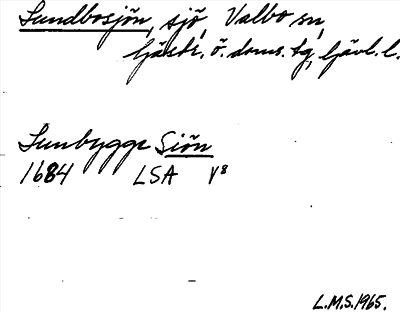 Sundbosjön, sjö, Valbo sn,
Gästr. ö. doms. tg, Gävl. l.
Sunbygge Siön
1684 LSA Y8
L.M.S. 1965.